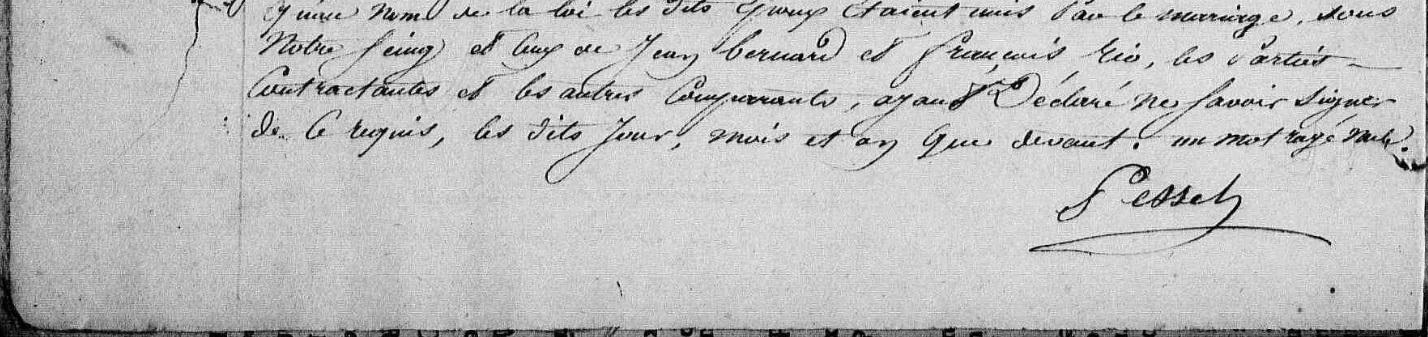 qu'au nom de la loi les dits Epoux étaient unis Par le mariage, sous
Notre seing et ceux de Jean bernard et françois rio, les Parties
Contractantes et les autres Comparants, ayant Déclaré ne savoir signer
de ce requis, les dits Jour, mois et an que devant. un mot rayé nul.
Pessel